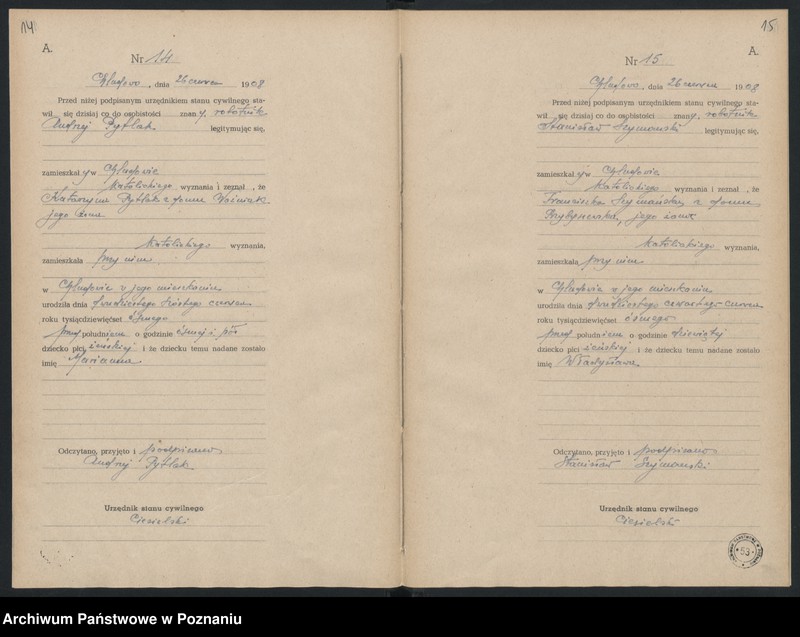 14
A.
Nr 14
Chludowo, dnia 26 czerwca 1908
Przed niżej podpisanym urzędnikiem stanu cywilnego sta-
wił się dzisiaj co do osobistości znany, robotnik
Andrzej Pytlak legitymując się,
zamieszkały w Chludowie
katolickiego wyznania i zeznał, że
Katarzyna Pytlak z domu Woźniak
jego żona
katolickiego wyznania,
zamieszkała przy nim
w Chludowie w jego mieszkaniu
urodziła dnia dwudziestego szóstego czerwca
roku tysiącdziewięćset ósmego
przed południem o godzinie ósmej i pół
dziecko płci żeńskiej i że dziecku temu nadane zostało
imię Marianna
Odczytano, przyjęto i podpisano
Andrzej Pytlak
Urzędnik stanu cywilnego
Ciesielski
15
A.
Nr 15
Chludowo, dnia 26 czerwca 1908
Przed niżej podpisanym urzędnikiem stanu cywilnego sta-
wił się dzisiaj co do osobistości znany, robotnik
Stanisław Szymański legitymując się,
zamieszkały w Chludowie
katolickiego wyznania i zeznał, że
Franciszka Szymańska z domu
jego żona
katolickiego wyznania,
zamieszkała przy nim
w Chludowie w jego mieszkaniu
urodziła dnia dwudziestego czwartego czerwca
roku tysiącdziewięćset ósmego
przed południem o godzinie dziewiątej
dziecko płci żeńskiej i że dziecku temu nadane zostało
imię Władysława
Odczytano, przyjęto i podpisano
Stanisław Szymański
Urzędnik stanu cywilnego
Ciesielski
53
Archiwum Państwowe w Poznaniu